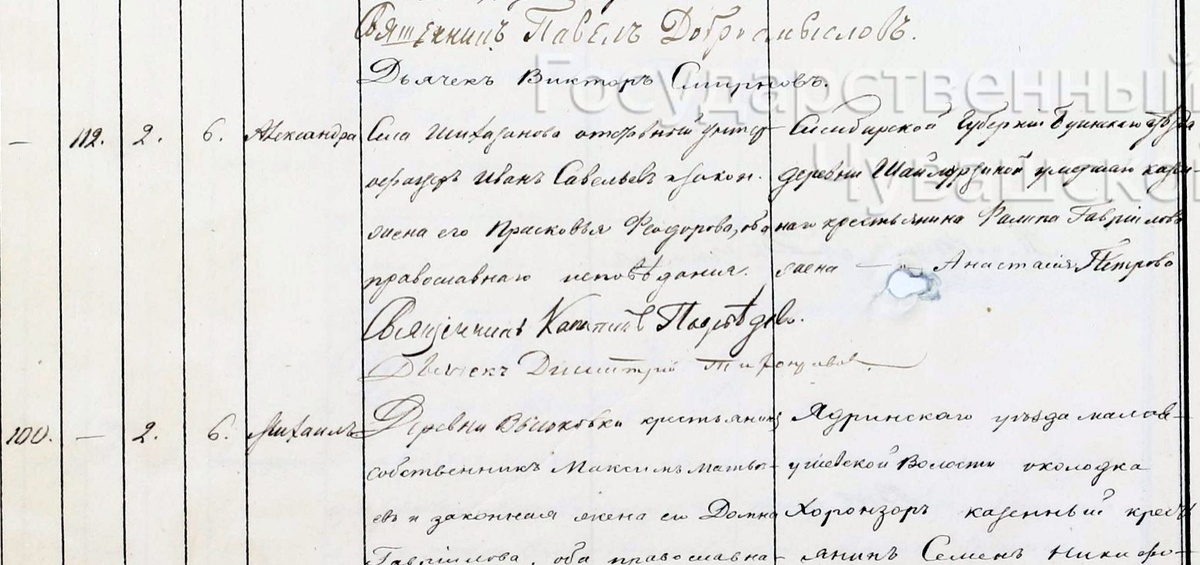 Священникъ Павелъ Добромысловъ.
Дьячекъ Викторъ Смирновъ.
Государственный
Чувашской
— 112. 2. 6. Александра
Села Шихазанова отставный унтеръ
офицеръ Иванъ Савельевъ и закон.
жена его Прасковья Феодорова, оба
православнаго исповѣданія.
Симбирской Губерніи Буинскаго Уѣзда
деревни Шаймурзиной умершаго казен-
наго крестьянина Филипа Гавріилова
жена — Анастасія Петрова
Священникъ
Дьячекъ Димитрій
100. — 2. 6. Михаилъ
Деревни крестьянинъ
собственникъ Максимъ Матвѣ-
евъ и законная жена его Домна
Гавріилова, оба православна-
Ядринскаго уѣзда малов-
Волости околодка
Хоронзоръ казенный кресть-
янинъ Семенъ Никифо-